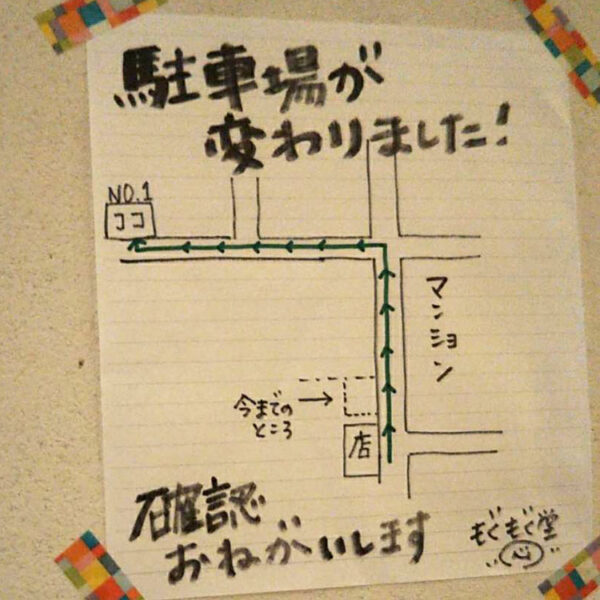 駐車場が
変わりました!
NO.1
ココ
マンション
今までの
ところ
店
確認
おねがいします
もぐもぐ堂
心